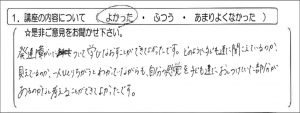 1. 講座の内容について（よかった・ふつう・あまりよくなかった）
☆是非ご意見をお聞かせ下さい。
発達障がいについて学びなおすことができてよかったです。どのように子ども達に聞こえているのか、
見えているのか、一人ひとりちがうとわかっていながらも、自分の感覚を子ども達におしつけていた部分が
あるのかなと考えることができてよかったです。